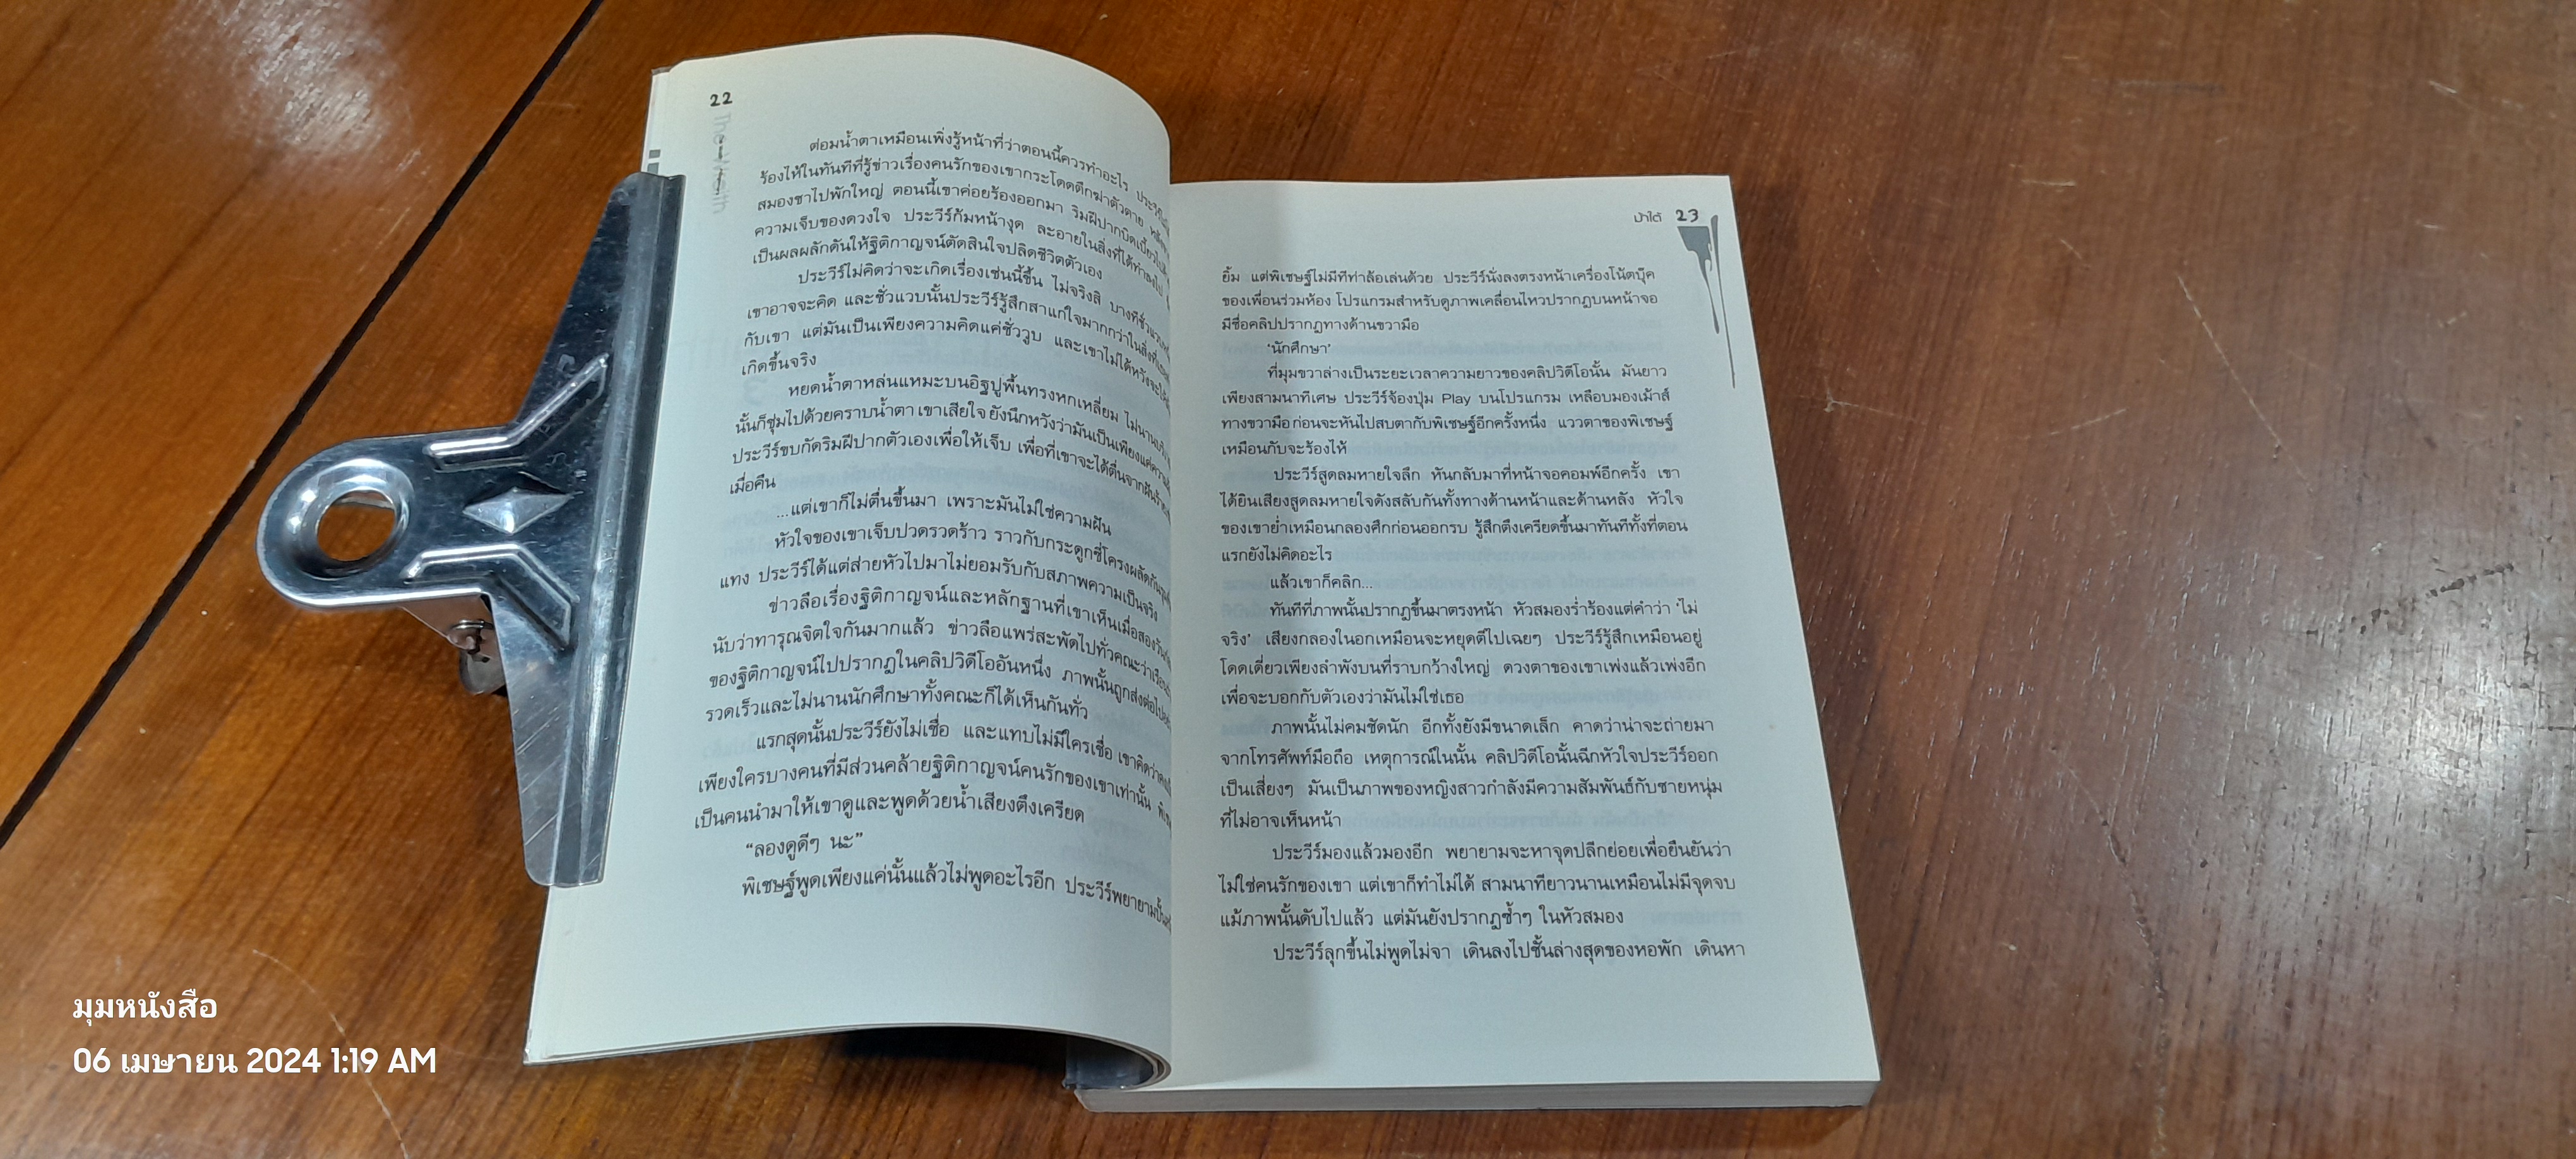 22
ต่อมน้ำตาเหมือนเพิ่งรู้หน้าที่ว่าตอนนี้ควรทำอะไร
ร้องไห้ในทันทีที่รู้ข่าวเรื่องคนรักของเขากระโดดตึกฆ่าตัวตาย
สมองชาไปพักใหญ่ ตอนนี้เขาค่อยร้องออกมา ริมฝีปากบิดเบี้ยว
ความเจ็บของดวงใจ ประวีร์ก้มหน้างุด ละอายในสิ่งที่ได้ทำลงไป
เป็นผลผลักดันให้ฐิติกาญจน์ตัดสินใจปลิดชีวิตตัวเอง
ประวีร์ไม่คิดว่าจะเกิดเรื่องเช่นนี้ขึ้น ไม่จริงสิ บางที
เขาอาจจะคิด และชั่วแวบนั้นประวีร์รู้สึกสาแก่ใจมากกว่าในสิ่งที่
กับเขา แต่มันเป็นเพียงความคิดแค่ชั่ววูบ และเขาไม่ได้หวังจะให้
เกิดขึ้นจริง
หยดน้ำตาหล่นแหมะบนอิฐปูพื้นทรงหกเหลี่ยม ไม่นาน
นั้นก็ชุ่มไปด้วยคราบน้ำตา เขาเสียใจ ยังนึกหวังว่ามันเป็นเพียงแค่
ประวีร์ขบกัดริมฝีปากตัวเองเพื่อให้เจ็บ เพื่อที่เขาจะได้ตื่นจากฝันร้าย
เมื่อคืน
...แต่เขาก็ไม่ตื่นขึ้นมา เพราะมันไม่ใช่ความฝัน
หัวใจของเขาเจ็บปวดรวดร้าว ราวกับกระดูกซี่โครงผลัดกัน
แทง ประวีร์ได้แต่ส่ายหัวไปมาไม่ยอมรับกับสภาพความเป็นจริง
ข่าวลือเรื่องฐิติกาญจน์และหลักฐานที่เขาเห็นเมื่อสองวัน
นับว่าทารุณจิตใจกันมากแล้ว ข่าวลือแพร่สะพัดไปทั่วคณะว่า
ของฐิติกาญจน์ไปปรากฏในคลิปวิดีโออันหนึ่ง ภาพนั้นถูกส่งต่อไป
รวดเร็วและไม่นานนักศึกษาทั้งคณะก็ได้เห็นกันทั่ว
แรกสุดนั้นประวีร์ยังไม่เชื่อ และแทบไม่มีใครเชื่อ เขาคิดว่า
เพียงใครบางคนที่มีส่วนคล้ายฐิติกาญจน์คนรักของเขาเท่านั้น
เป็นคนนำมาให้เขาดูและพูดด้วยน้ำเสียงตึงเครียด
“ลองดูดีๆ นะ”
พิเชษฐ์พูดเพียงแค่นั้นแล้วไม่พูดอะไรอีก ประวีร์พยายามปั้น
ป่าได้ 23
ยิ้ม แต่พิเชษฐ์ไม่มีทีท่าล้อเล่นด้วย ประวีร์นั่งลงตรงหน้าเครื่องโน้ตบุ๊ค
ของเพื่อนร่วมห้อง โปรแกรมสำหรับดูภาพเคลื่อนไหวปรากฏบนหน้าจอ
มีชื่อคลิปปรากฏทางด้านขวามือ
‘นักศึกษา’
ที่มุมขวาล่างเป็นระยะเวลาความยาวของคลิปวิดีโอนั้น มันยาว
เพียงสามนาทีเศษ ประวีร์จ้องปุ่ม Play บนโปรแกรม เหลือบมองเม้าส์
ทางขวามือก่อนจะหันไปสบตากับพิเชษฐ์อีกครั้งหนึ่ง แววตาของพิเชษฐ์
เหมือนกับจะร้องไห้
ประวีร์สูดลมหายใจลึก หันกลับมาที่หน้าจอคอมพ์อีกครั้ง เขา
ได้ยินเสียงสูดลมหายใจดังสลับกันทั้งทางด้านหน้าและด้านหลัง หัวใจ
ของเขาย่ำเหมือนกลองศึกก่อนออกรบ รู้สึกตึงเครียดขึ้นมาทันทีทั้งที่ตอน
แรกยังไม่คิดอะไร
แล้วเขาก็คลิก...
ทันทีที่ภาพนั้นปรากฏขึ้นมาตรงหน้า หัวสมองร่ำร้องแต่คำว่า ‘ไม่
จริง’ เสียงกลองในอกเหมือนจะหยุดตีไปเฉยๆ ประวีร์รู้สึกเหมือนอยู่
โดดเดี่ยวเพียงลำพังบนที่ราบกว้างใหญ่ ดวงตาของเขาเพ่งแล้วเพ่งอีก
เพื่อจะบอกกับตัวเองว่ามันไม่ใช่เธอ
ภาพนั้นไม่คมชัดนัก อีกทั้งยังมีขนาดเล็ก คาดว่าน่าจะถ่ายมา
จากโทรศัพท์มือถือ เหตุการณ์ในนั้น คลิปวิดีโอนั้นฉีกหัวใจประวีร์ออก
เป็นเสี่ยงๆ มันเป็นภาพของหญิงสาวกำลังมีความสัมพันธ์กับชายหนุ่ม
ที่ไม่อาจเห็นหน้า
ประวีร์มองแล้วมองอีก พยายามจะหาจุดปลีกย่อยเพื่อยืนยันว่า
ไม่ใช่คนรักของเขา แต่เขาก็ทำไม่ได้ สามนาทียาวนานเหมือนไม่มีจุดจบ
แม้ภาพนั้นดับไปแล้ว แต่มันยังปรากฏซ้ำๆ ในหัวสมอง
ประวีร์ลุกขึ้นไม่พูดไม่จา เดินลงไปชั้นล่างสุดของหอพัก เดินหา
มุมหนังสือ
06 เมษายน 2024 1:19 AM